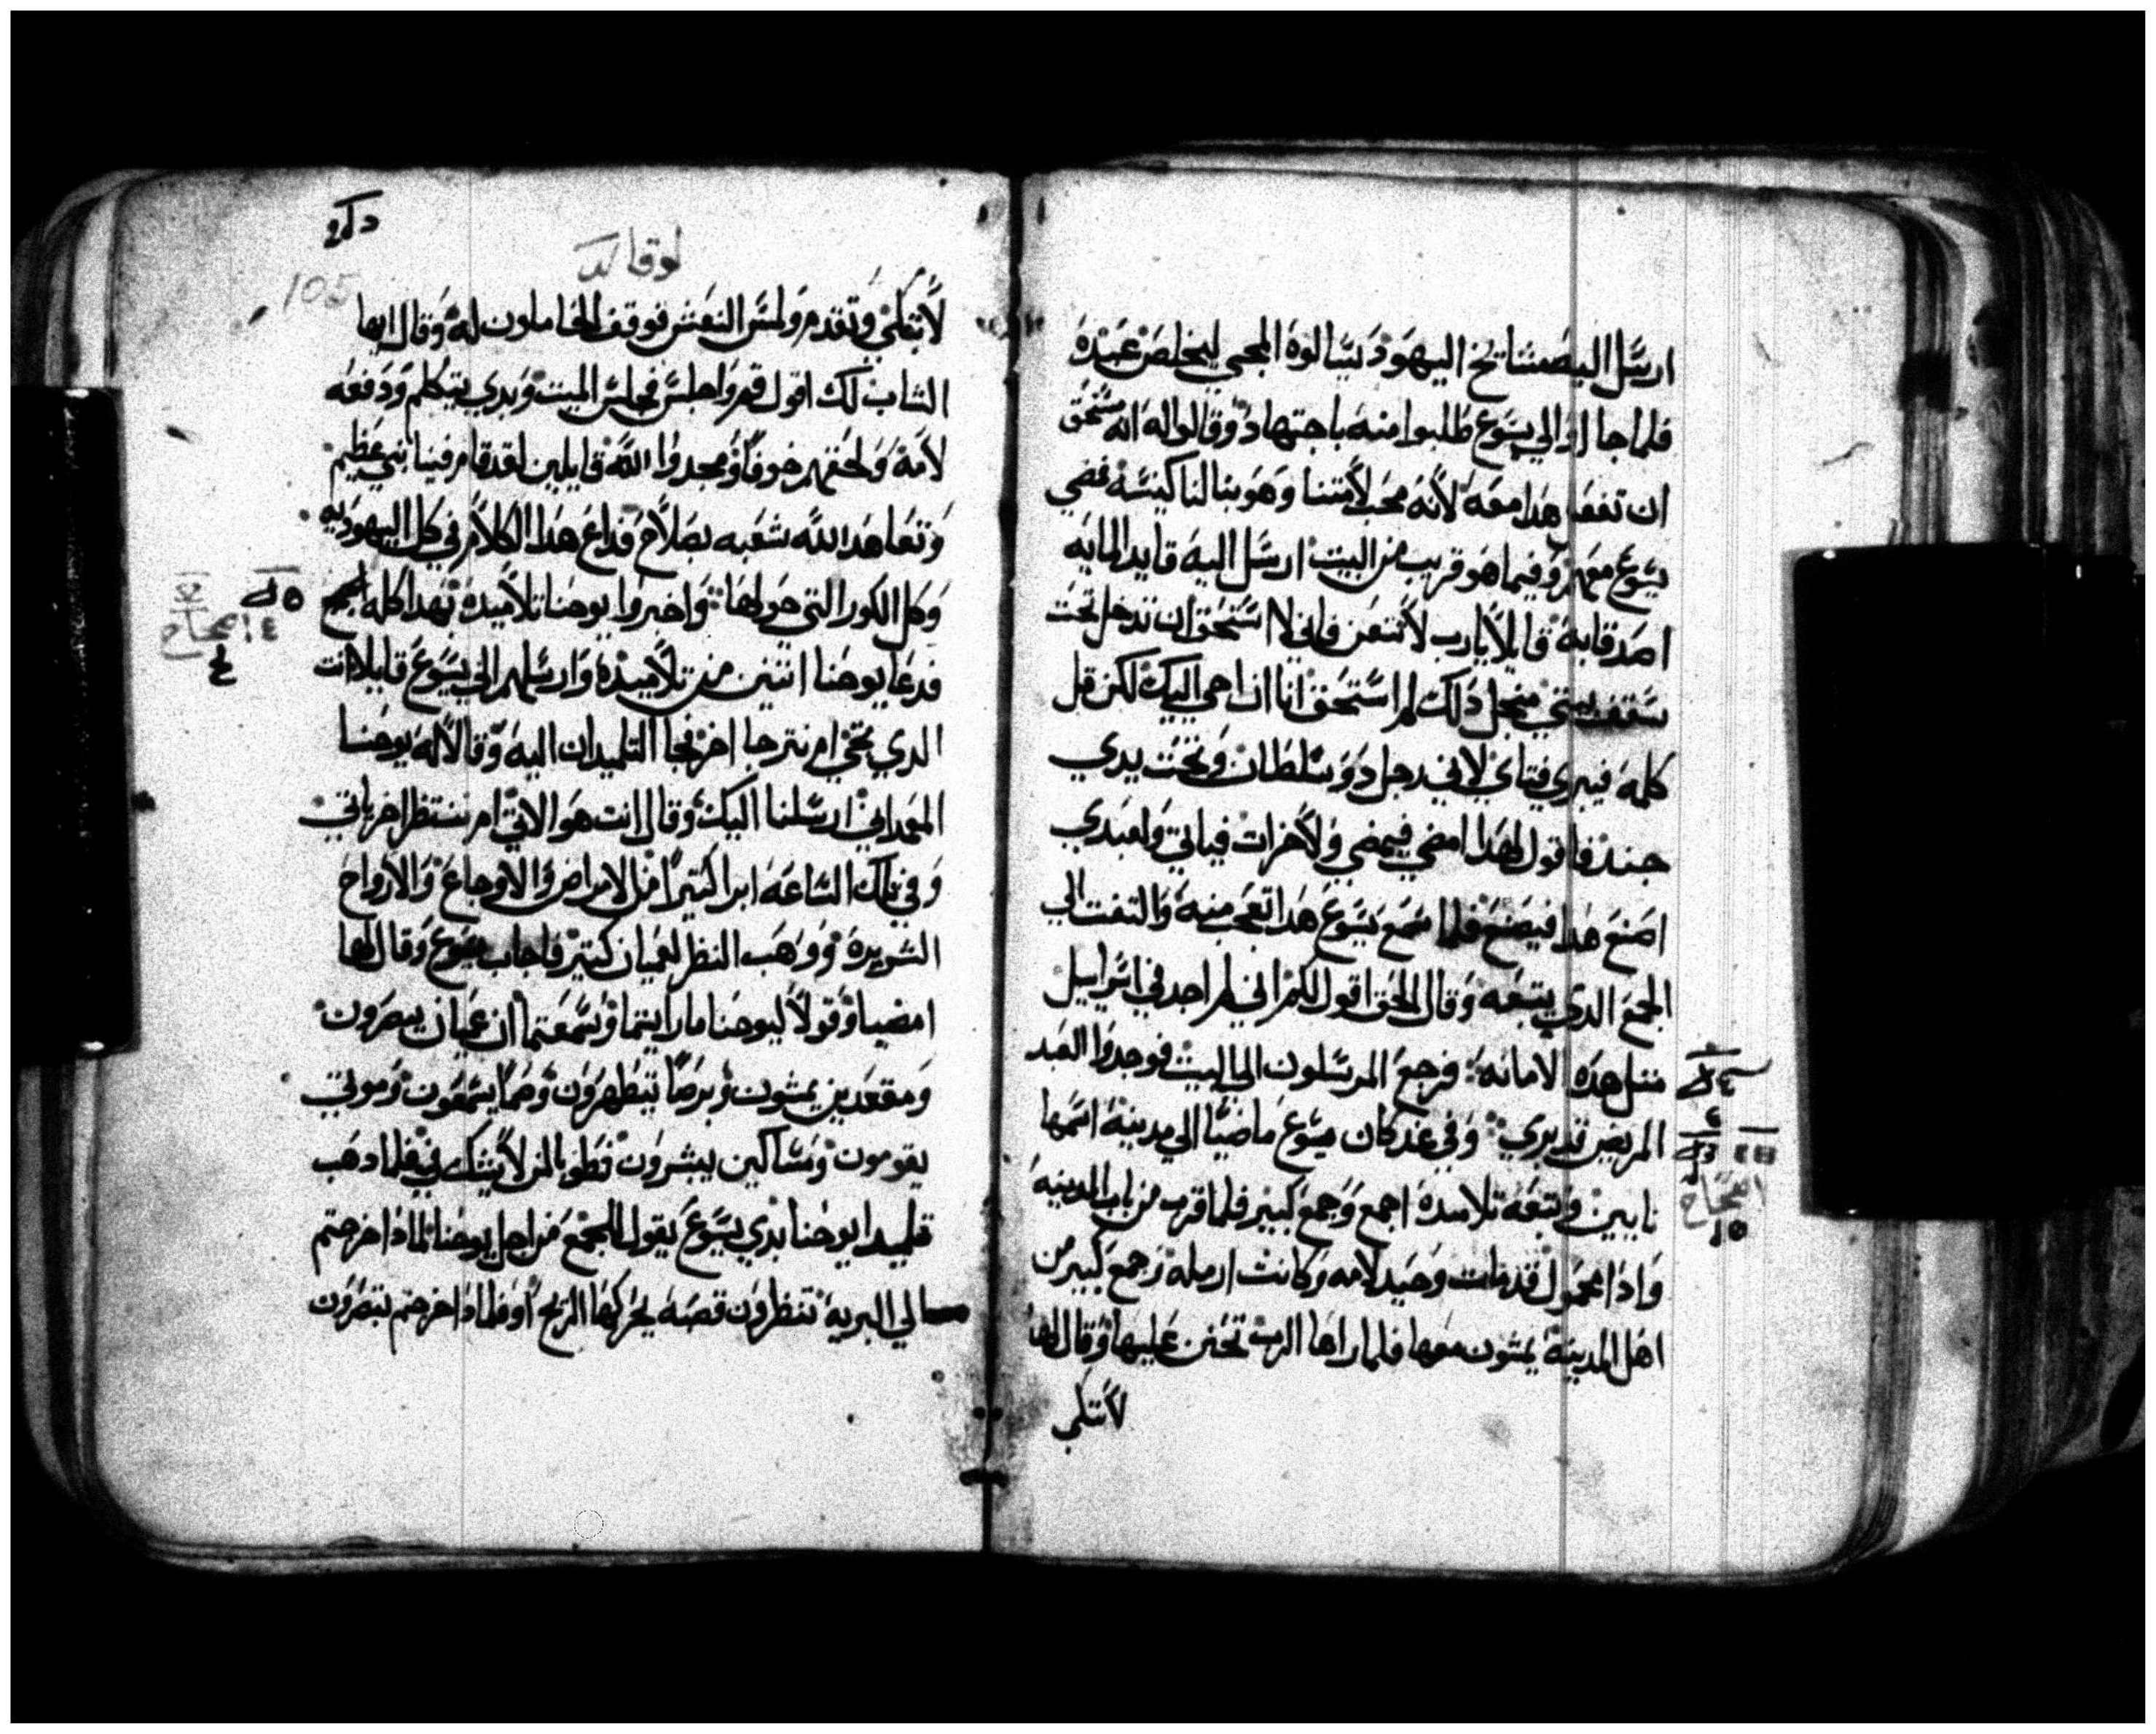 ارسل اليه مشايخ اليهود يسالوه المجي ليخلص عبده
فلما جااوا الي يسوع طلبوا منه باجتهاد وقالوا له انه مستحق
ان تفعل هدا معه لانه محب لامتنا وهو بنا لنا كنيسه فمضي
يسوع معهم وفيما هو قريب من البيت ارسل اليه قايد المايه
اصدقايه قايلا يارب لا تتعن فاني لا استحق ان تدخل تحت
سقف بيتي منجل دلك لم استحق انا ان اجي اليك لكن قل
كلمه فيبري فتاي لاني رجل دو سلطان وتحت يدي
جند فاقول لهدا امضي فيمضي ولاخر ات فياتي ولعبدي
اصنع هدا فيصنع فلما سمع يسوع هدا تعجب منه والتفت الي
الجمع الدي يتبعه وقال الحق اقول لكم اني لم اجد في اسراييل
متل هده الامانه فرجع المرسلون الي البيت فوجدوا العبد
المريض قد بري وفي غد كان يسوع ماضيا الي مدينه اسمها
نايين وتتبعه تلاميده اجمع وجمع كبير فلما قرب من باب المدينه
وادا محمول قد مات وحيد لامه وكانت ارمله وجمع كبير من
اهل المدينه يمشون معها فلما راها الرب تحنن عليها وقال لها
لا تبكي
اصحاح
لوقا
105
لا تبكي وتقدم ولمس النعش فوقف الحاملون له وقال ايها
الشاب لك اقول قم واجلس فجلس الميت وبدي يتكلم ودفعه
لامه ولحقهم خوفا ومجدوا الله قايلين لقد قام فينا نبي عظيم
وتعاهد الله شعبه بصلاح فداع هدا الكلام في كل اليهوديه
وكل الكور التي حولها واخبروا يوحنا تلاميده بهدا كله اجمع
فدعا يوحنا اتنين من تلاميده وارسلهم الي يسوع قايلا انت
الدي يجي ام نترجا اخر فجا التلميدان اليه وقالا له يوحنا
المعمداني ارسلنا اليك وقال انت هو الاتي ام ننتظر اخر ياتي
وفي تلك الساعه ابرا كتيرا من الامراض والاوجاع والارواح
الشريره ووهب النظر لعميان كتير فاجاب يسوع وقال لهما
امضيا وقولا ليوحنا ما رايتما وسمعتما ان عميان يبصرون
ومقعدين يمشون وبرصا يتطهرون وصما يسمعون وموتي
يقومون ومساكين يبشرون فطوبا لمن لا يشك في فلما دهب
تلميدا يوحنا بدي يسوع يقول للجمع من اجل يوحنا لمادا خرجتم
الي البريه تنظرون قصبه يحركها الريح او فلمادا خرجتم تبصرون
اصحاح